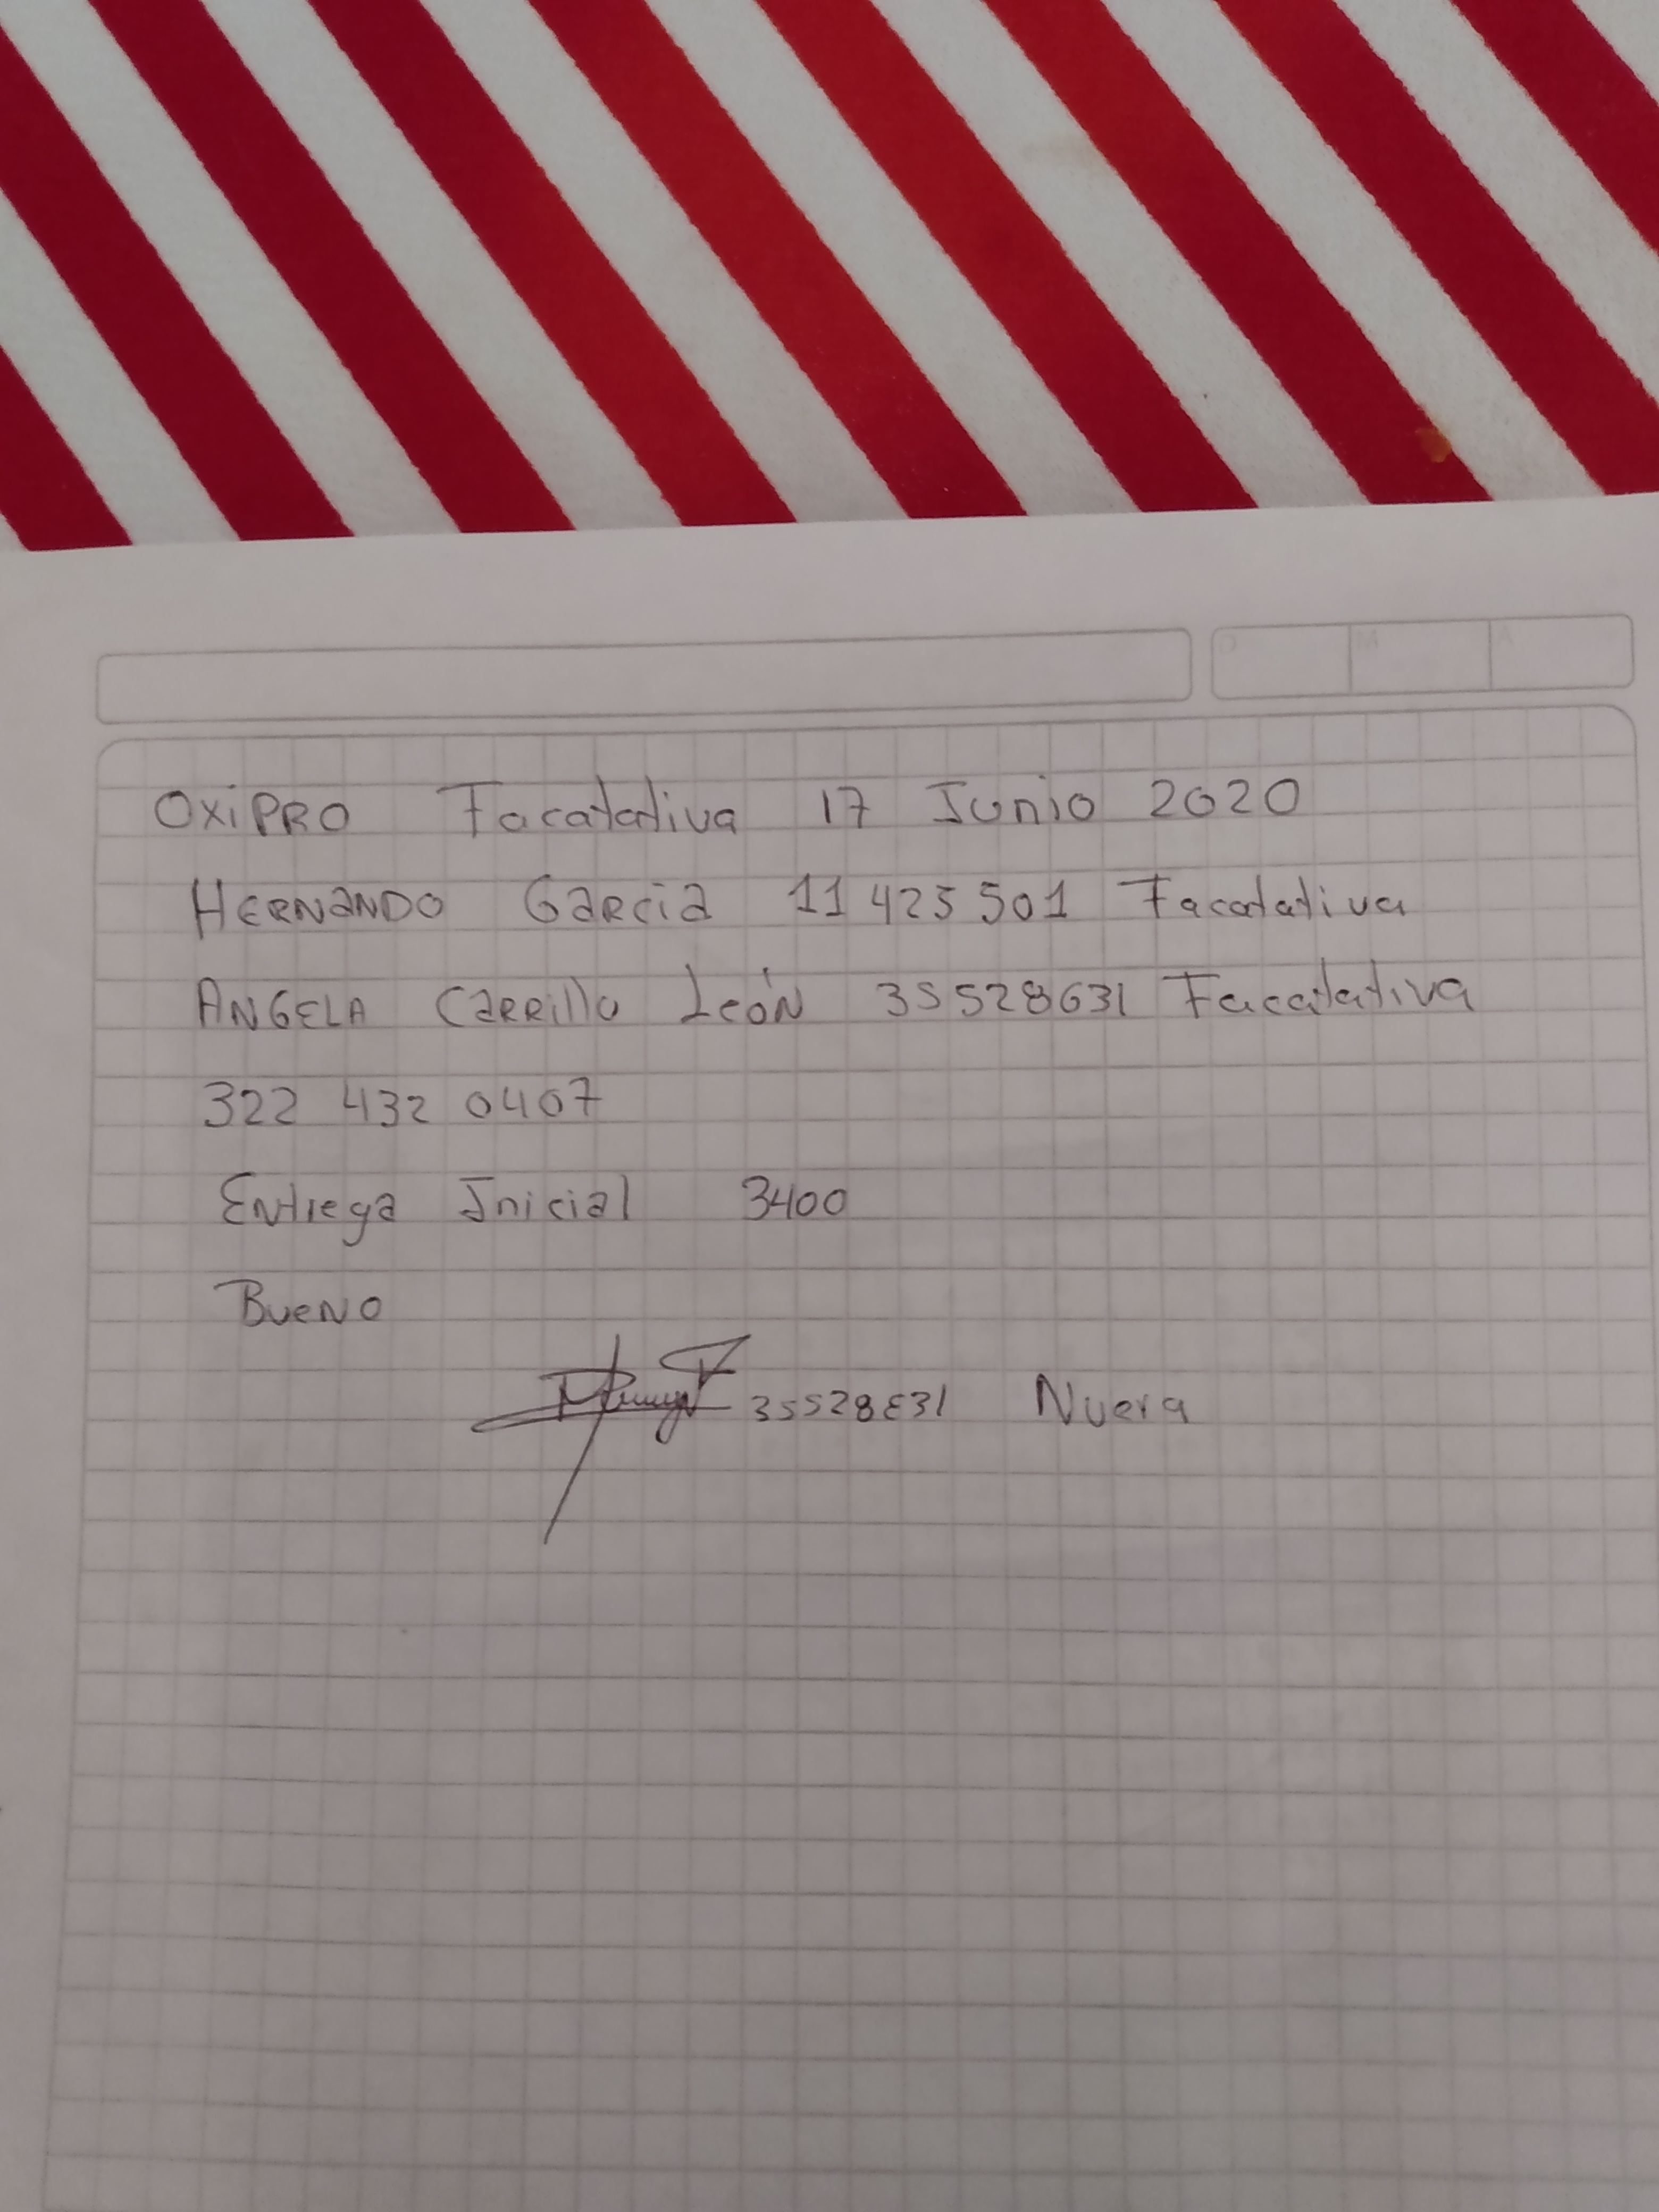 OXiPRO Facatativa 17 Junio 2020
HERNANDO Garcia 11 425 501 Facatativa
ANGELA Carrillo León 35528631 Facatativa
322 432 0407
Entrega Inicial 3400
Bueno
35528631 Nuera